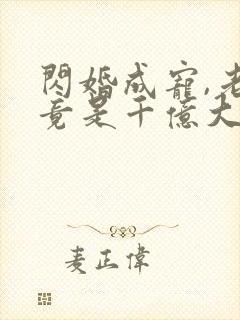 閃婚成寵,老
竟是千億大
麦正偉